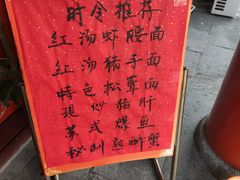 时令推荐
红汤虾腰面
红汤猪手面
特色松茸面
现炒猪肝
苏式爆鱼
秘制熟醉蟹